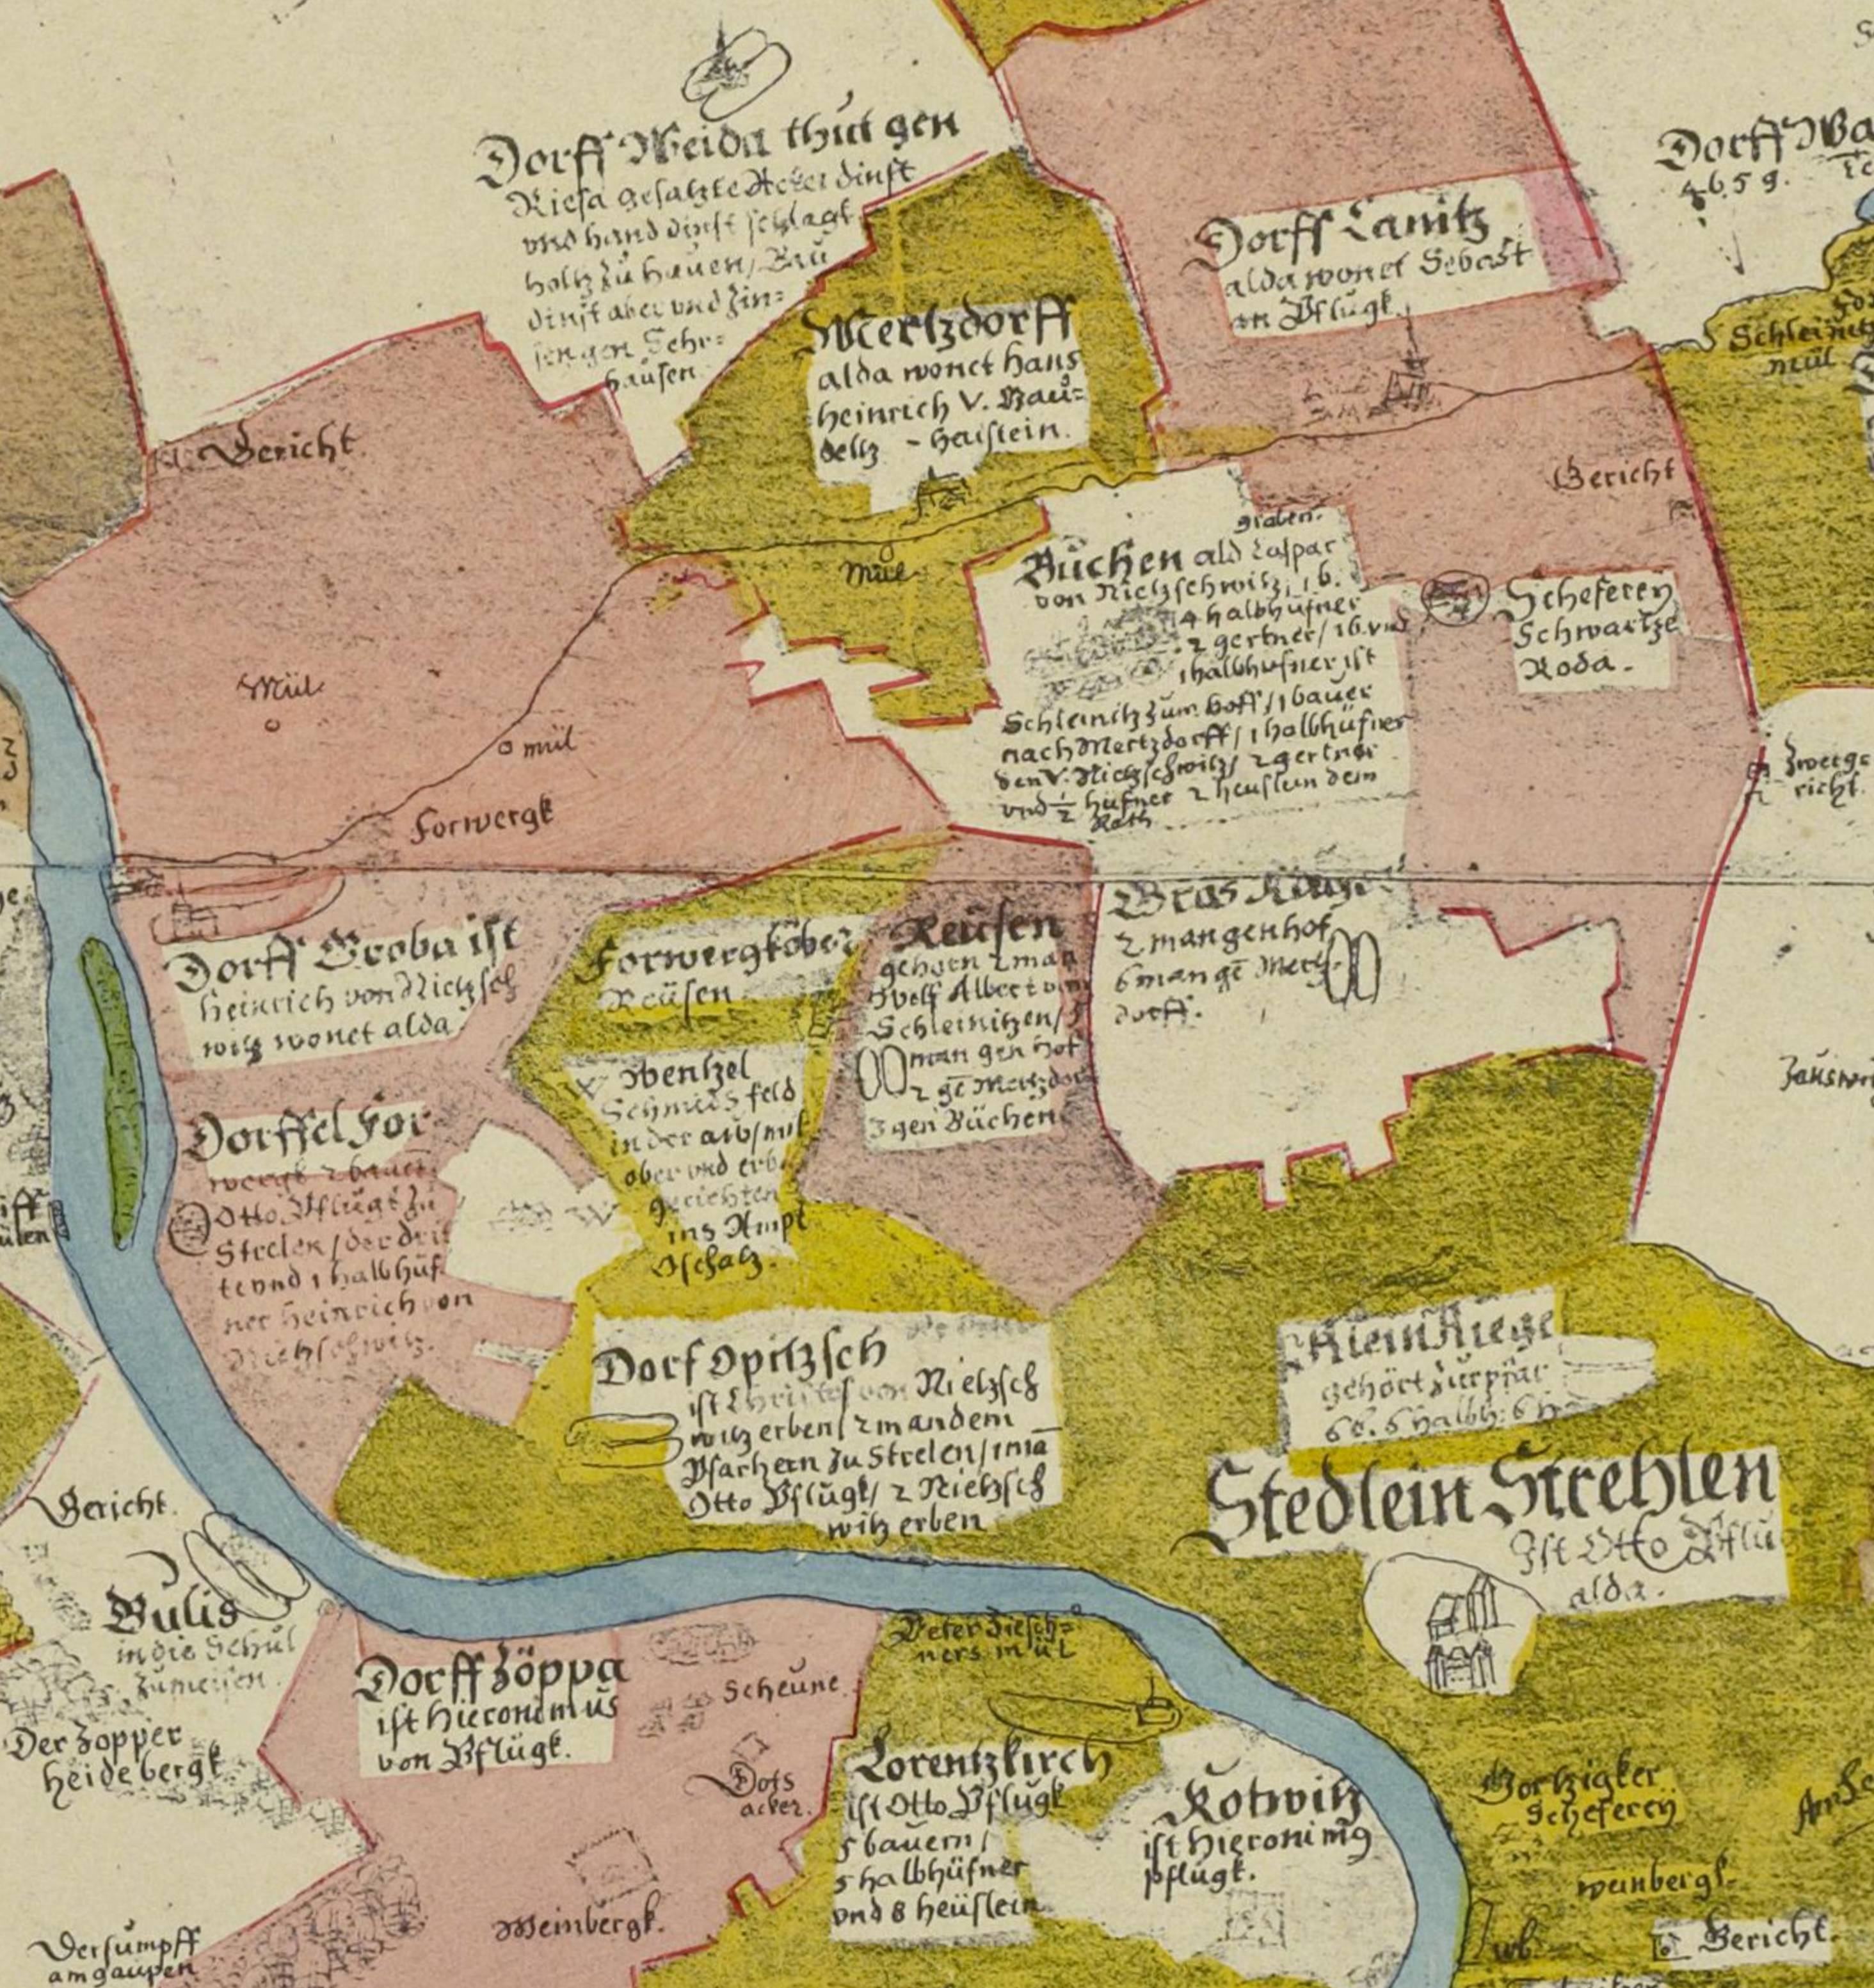 Dorff Weida thut gen
Riesa gesatzte Acker dinst
vnd hand dinst schlagk
holtz zu hauen / Bau
dinst aber vnd zin=
sen gen Sehr=
hausen
Dorff Canitz
alda wonet Sebast
an Pflugk
Dorff Wa
4659.
Schleinitz
mül
Mertzdorff
alda wonet hans
heinrich V. Bau=
deltz - haistein.
Gericht
Gericht
graben.
Mül
Büchen ald Caspar
von Nietzschwitz, 1 b.
4 halbhüfner
2 gertner / 1 b. vnd
1 halbhufner ist
Schleinitz zum hoff / 1 bauer
nach Mertzdorff / 1 halbhüfner
den V. Nietzschwitz / 2 gertner
vnd ½ hüfner 2 heuslein dem
Rath
Scheferey
Schwartze
Roda.
Mül
mül
Forwergk
Zwerge
richt.
Dorff Groba ist
heinrich von Nietzsch
witz wonet alda
Forwergk ober
Reüsen
Reüsen
gehorn 2 man
Wolf Albert von
Schleinitzen /
man gen hof
2 gē Mertzdor
3 gen Büchen
Gros Rüge
2 man gen hof
6 man gē Mertz
dorff.
Wentzel
Schmids feld
in der aw / mit
ober vnd erb
gerichten
ins Ampt
Oschatz.
W
W
Dorffel For
wergk 2 bauer
Otto Pflugk zu
Strelen / der drit
te vnd 1 halbhuf
ner heinrich von
Nietzschwitz.
Dorf Opitzsch
ist Christof von Nietzsch
witz erben / 2 man dem
Pfarhern zu Strelen / 1 mā
Otto Pflugk / 2 Nietzsch
witz erben
Klein Riege
gehört zur pfar
6 b. 6 halbh: 6 h
Stedlein Strehlen
Ist Otto Pflu
alda.
Gericht.
Gulis
in die Schul
zu meisen.
Der Zopper
heidebergk
Dorff Zöppa
ist Hieronimus
von Pflugk.
Scheune
Peter Ziesch=
ners mül
Dots
acker.
Lorentzkirch
ist Otto Pflugk
5 bauern /
5 halbhüfner
vnd 8 heüslein
Kotwitz
ist Hieronimg
pflugk.
Gortzigker
Scheferey
weinbergk.
Weinbergk.
Gericht.
wb
Der sumpff
am gaupen